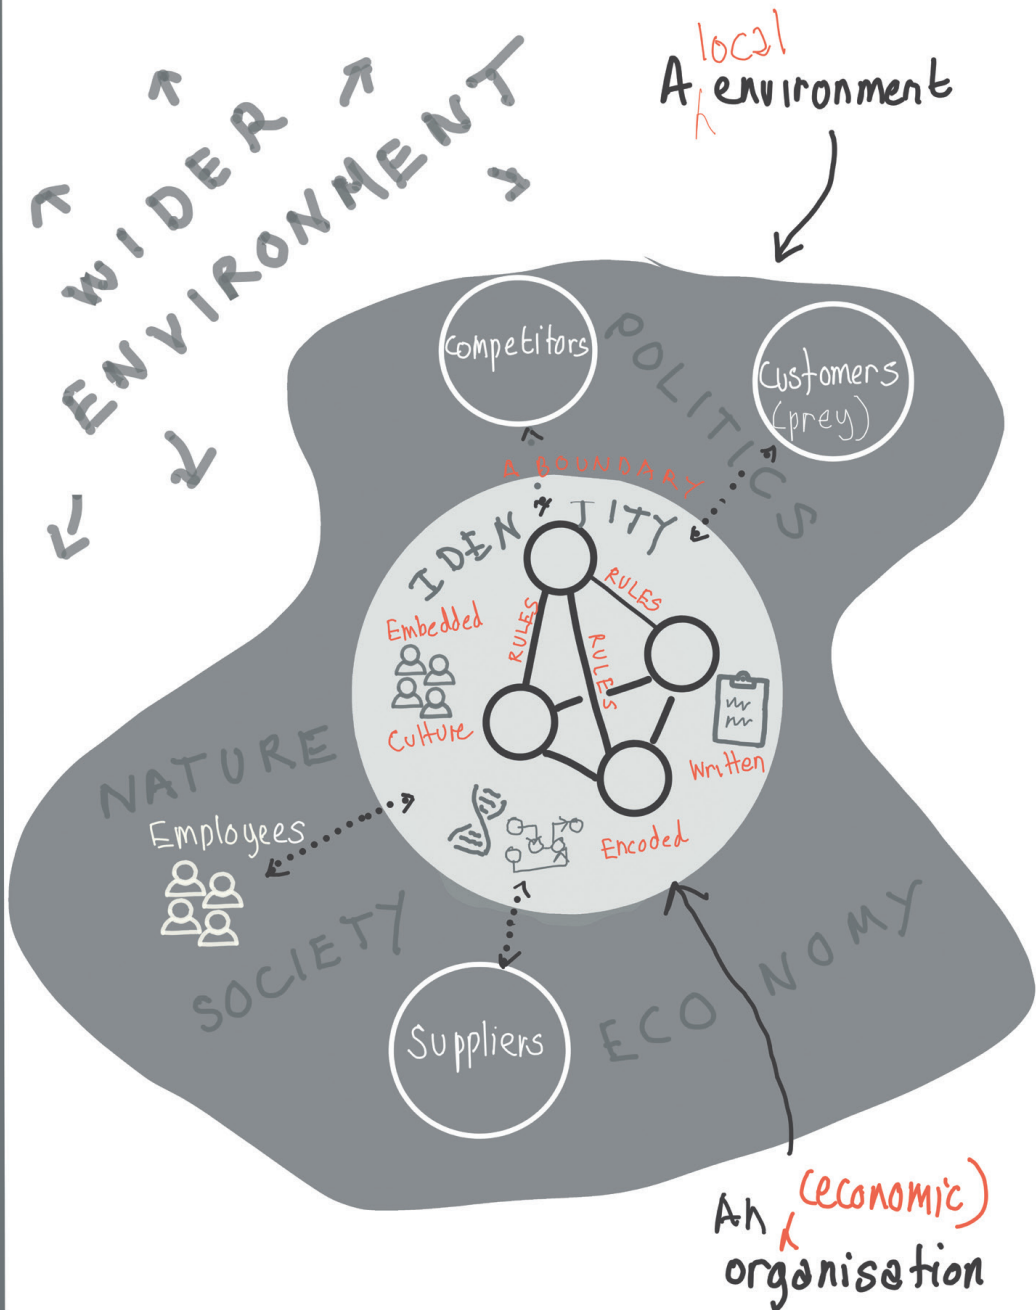 local
A environment
WIDER
ENVIRONMENT
Competitors
POLITICS
Customers
(prey)
A BOUNDARY
IDENTITY
RULES
RULES
RULES
Embedded
Culture
Written
Encoded
NATURE
Employees
SOCIETY
ECONOMY
Suppliers
An (economic)
organisation